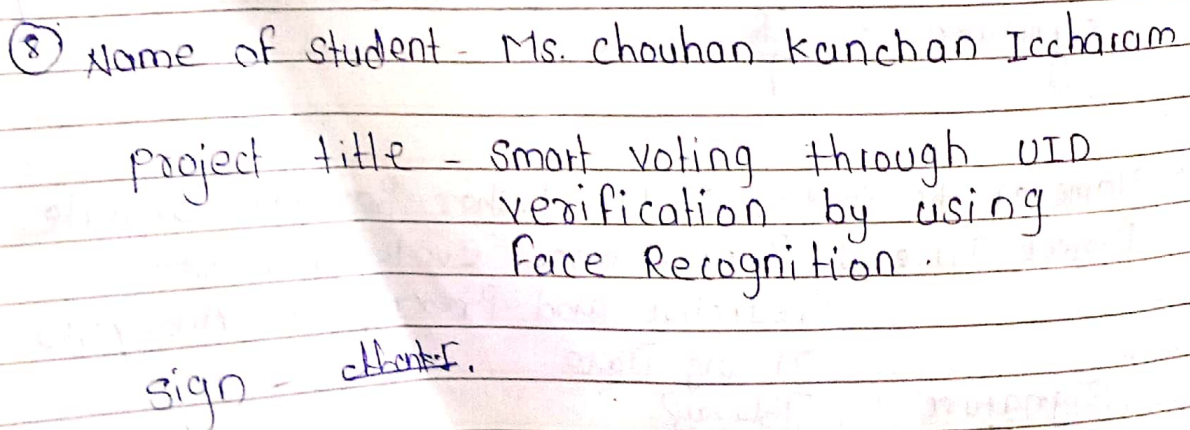 ⑧ Name of student - Ms. Chouhan Kanchan Iccharam
Project title - Smart voting through UID
verification by using
Face Recognition.
sign -